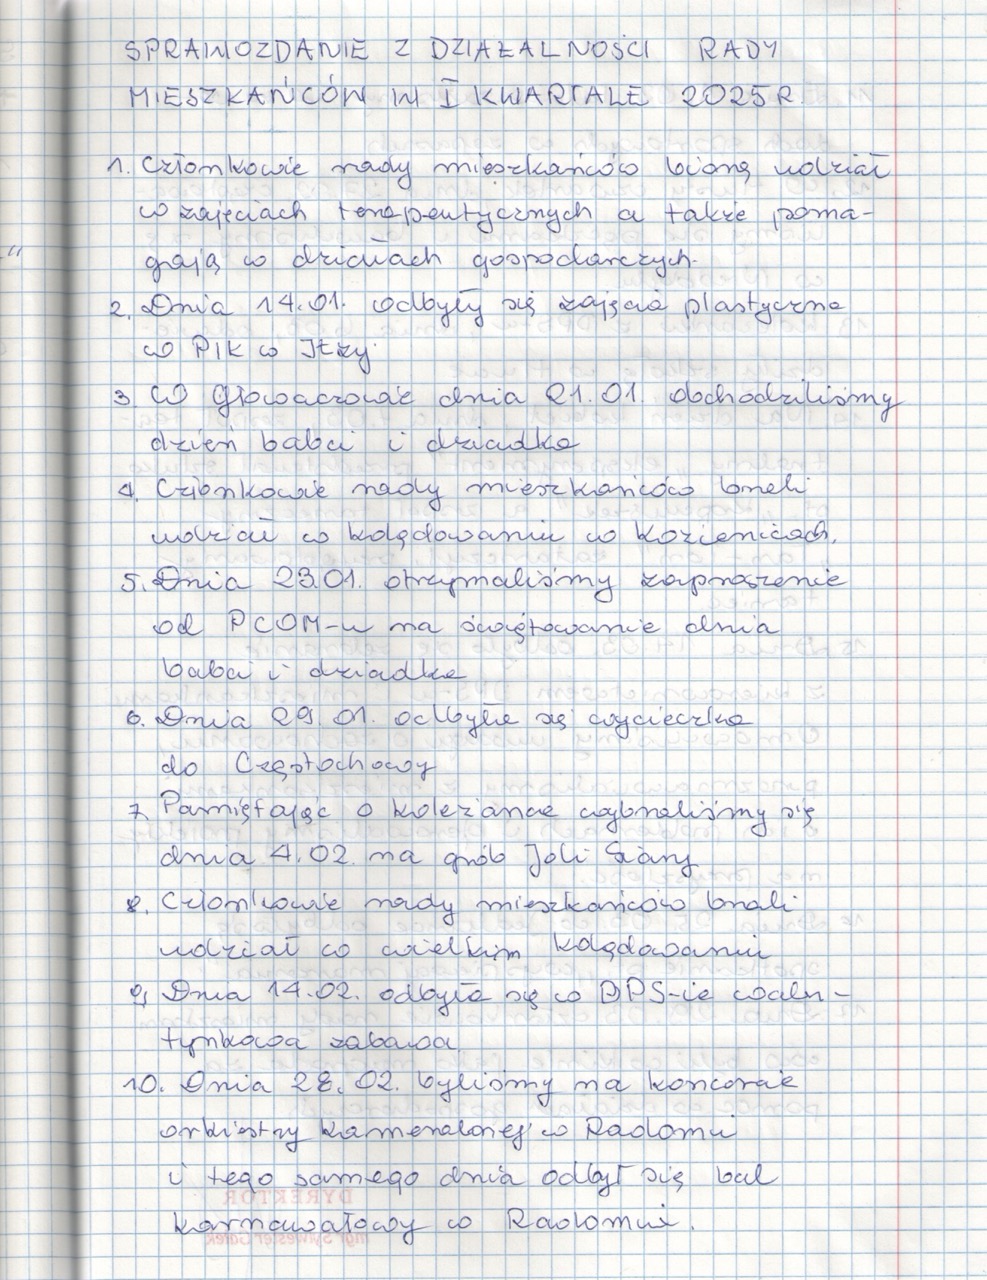 SPRAWOZDANIE Z DZIAŁALNOŚCI RADY
MIESZKAŃCÓW W I KWARTALE 2025R.
1. Członkowie rady mieszkańców biorą udział
w zajęciach terapeutycznych a także poma-
gają w działach gospodarczych.
2. Dnia 14.01. odbyły się zajęcia plastyczne
w PIK w Iłży.
3. W Głowaczowie dnia 21.01. obchodziliśmy
dzień babci i dziadka
4. Członkowie rady mieszkańców brali
udział w kolędowaniu w Kozienicach.
5. Dnia 23.01. otrzymaliśmy zaproszenie
od PCOM-u na świętowanie dnia
babci i dziadka
6. Dnia 29.01. odbyła się wycieczka
do Częstochowy
7. Pamiętając o koleżance wybraliśmy się
dnia 4.02. na grób Joli
8. Członkowie rady mieszkańców brali
udział w wielkim kolędowaniu
9. Dnia 14.02. odbyła się w DPS-ie walen-
tynkowa zabawa.
10. Dnia 28.02. byliśmy na koncercie
orkiestry kameralnej w Radomiu
i tego samego dnia odbył się bal
karnawałowy w Radomiu.